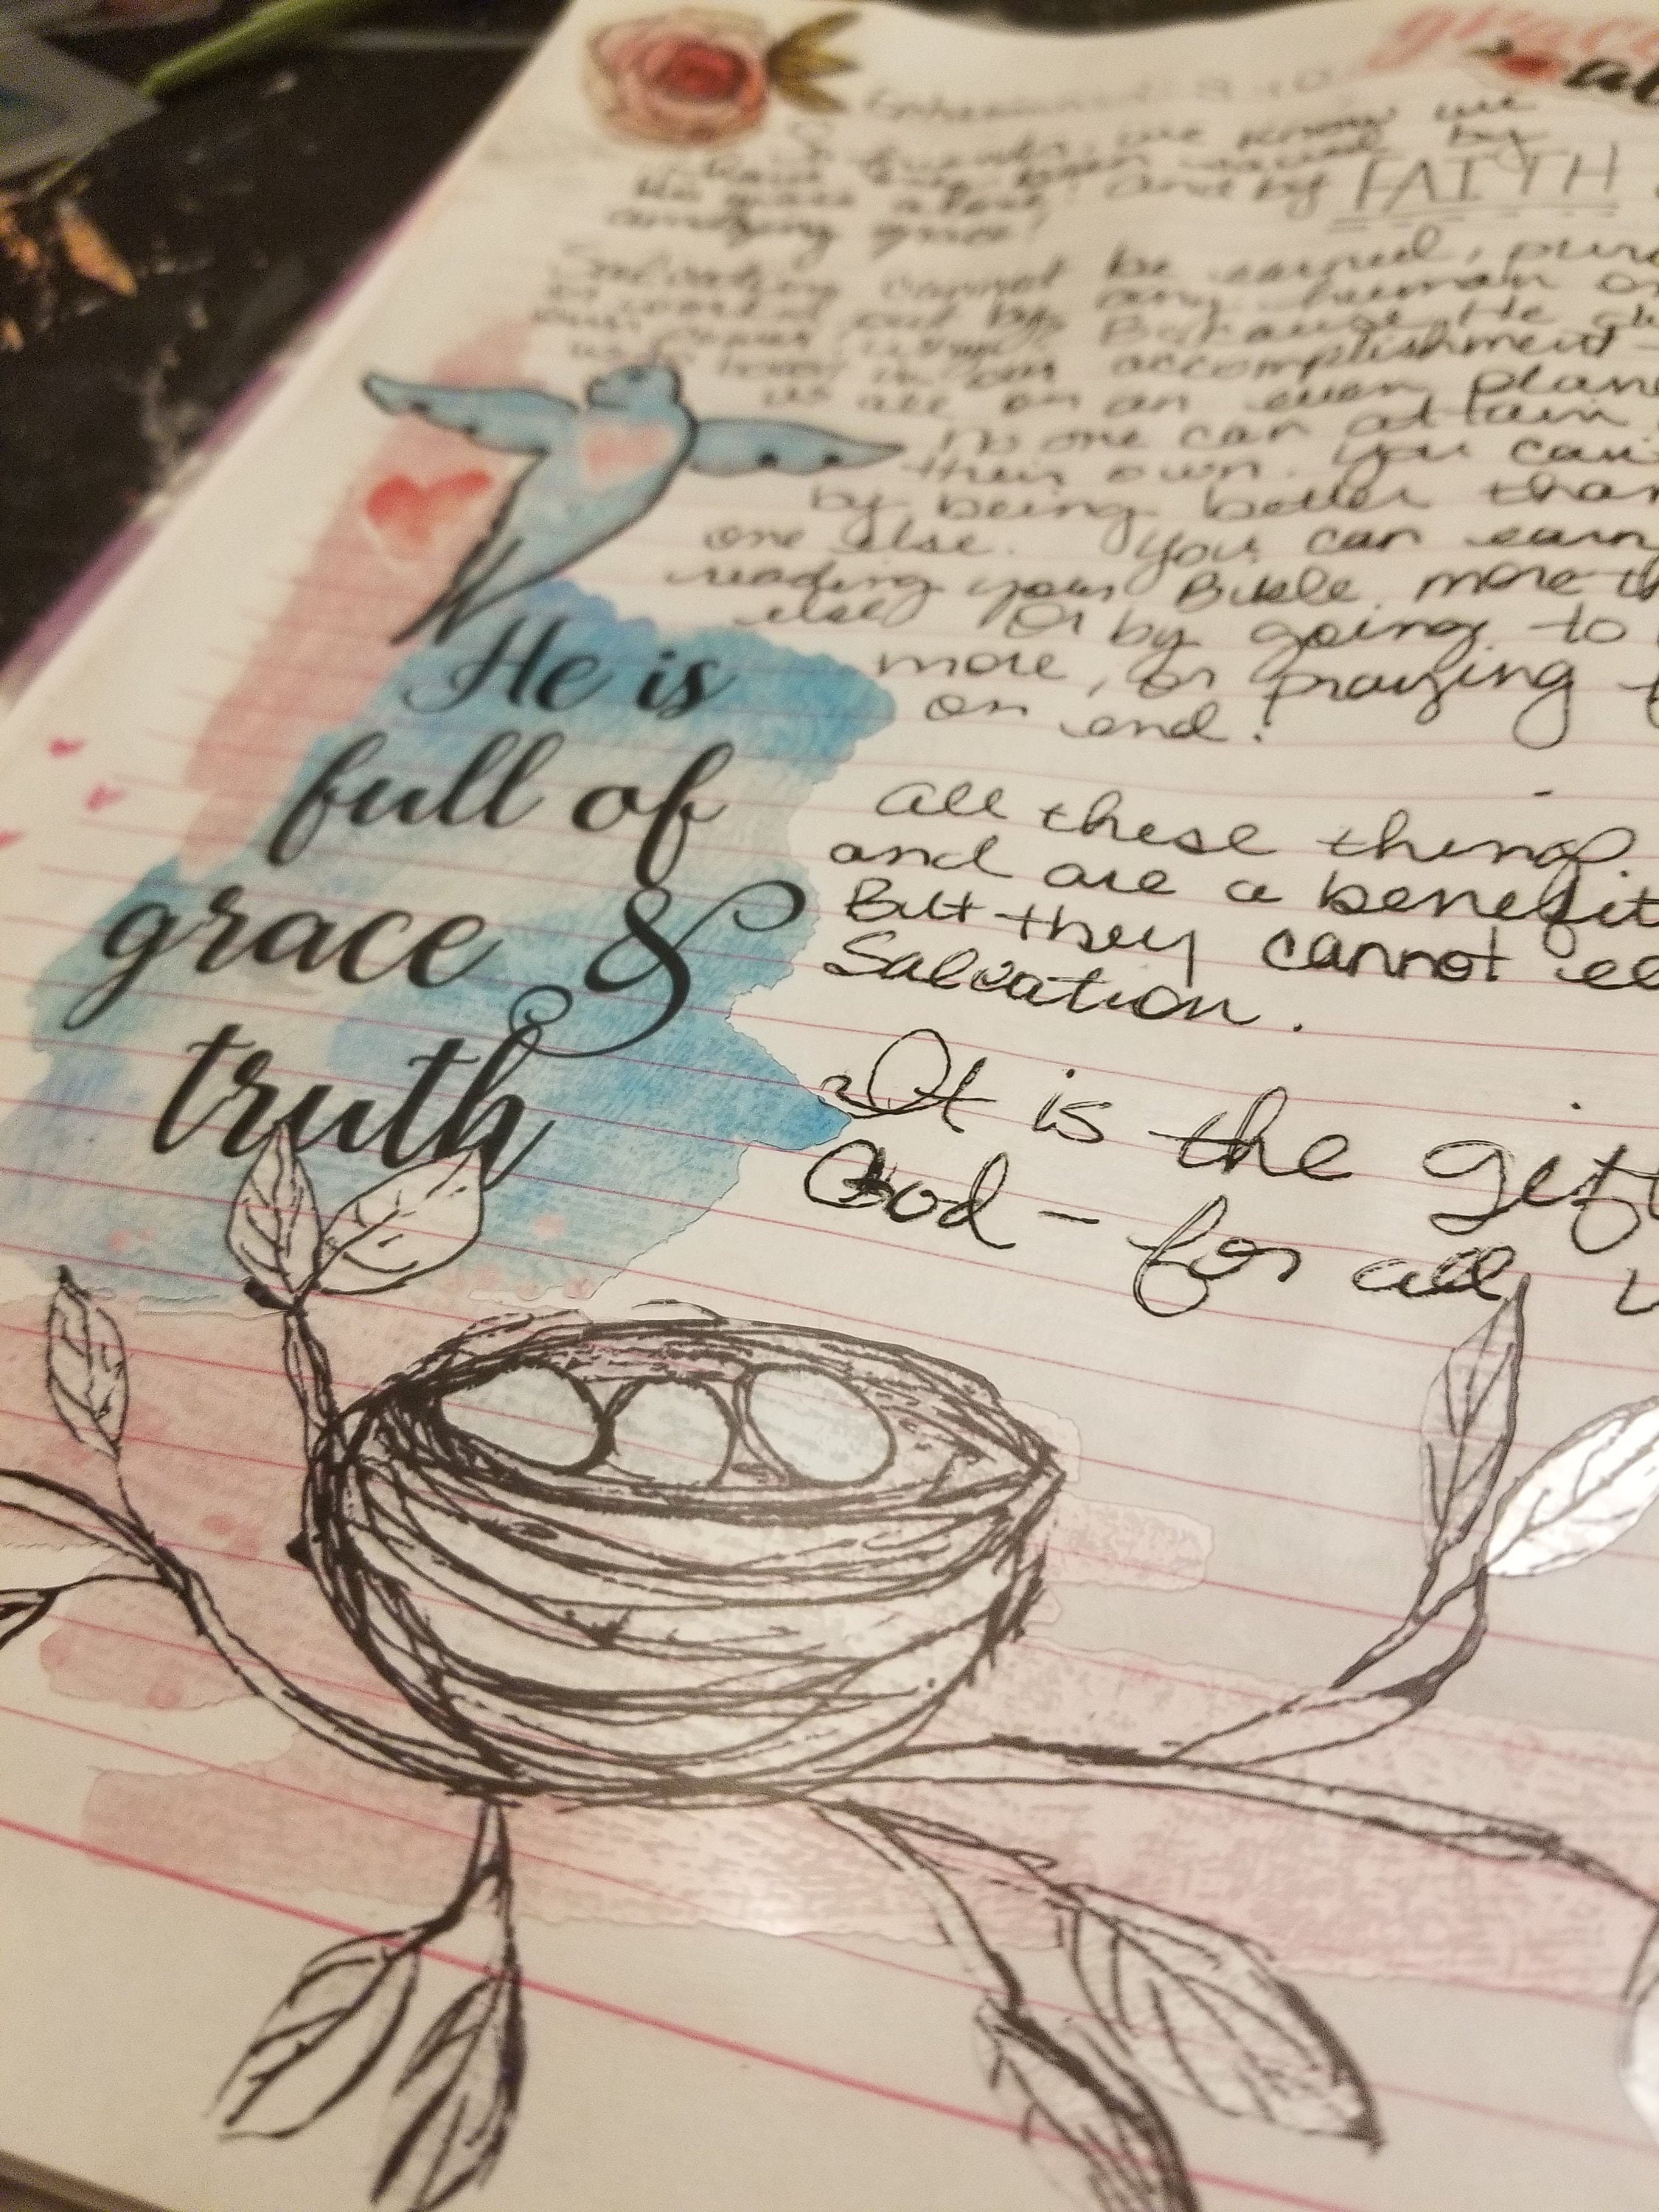 grace
Ephesians
friends, we know we
have been saved by
His grace alone! and by FAITH
amazing grace!
Salvation cannot be earned,
or worked out by any human
Because He
in our accomplishment-
us all on an even plane
No one can attain
their own. You can't
by being better than
one else. You can earn
reading your Bible more
else Or by going to
more, or praying
on end!
He is
full of
grace &
truth
All these things
and are a benefit
But they cannot
Salvation.
It is the gift
God - for all